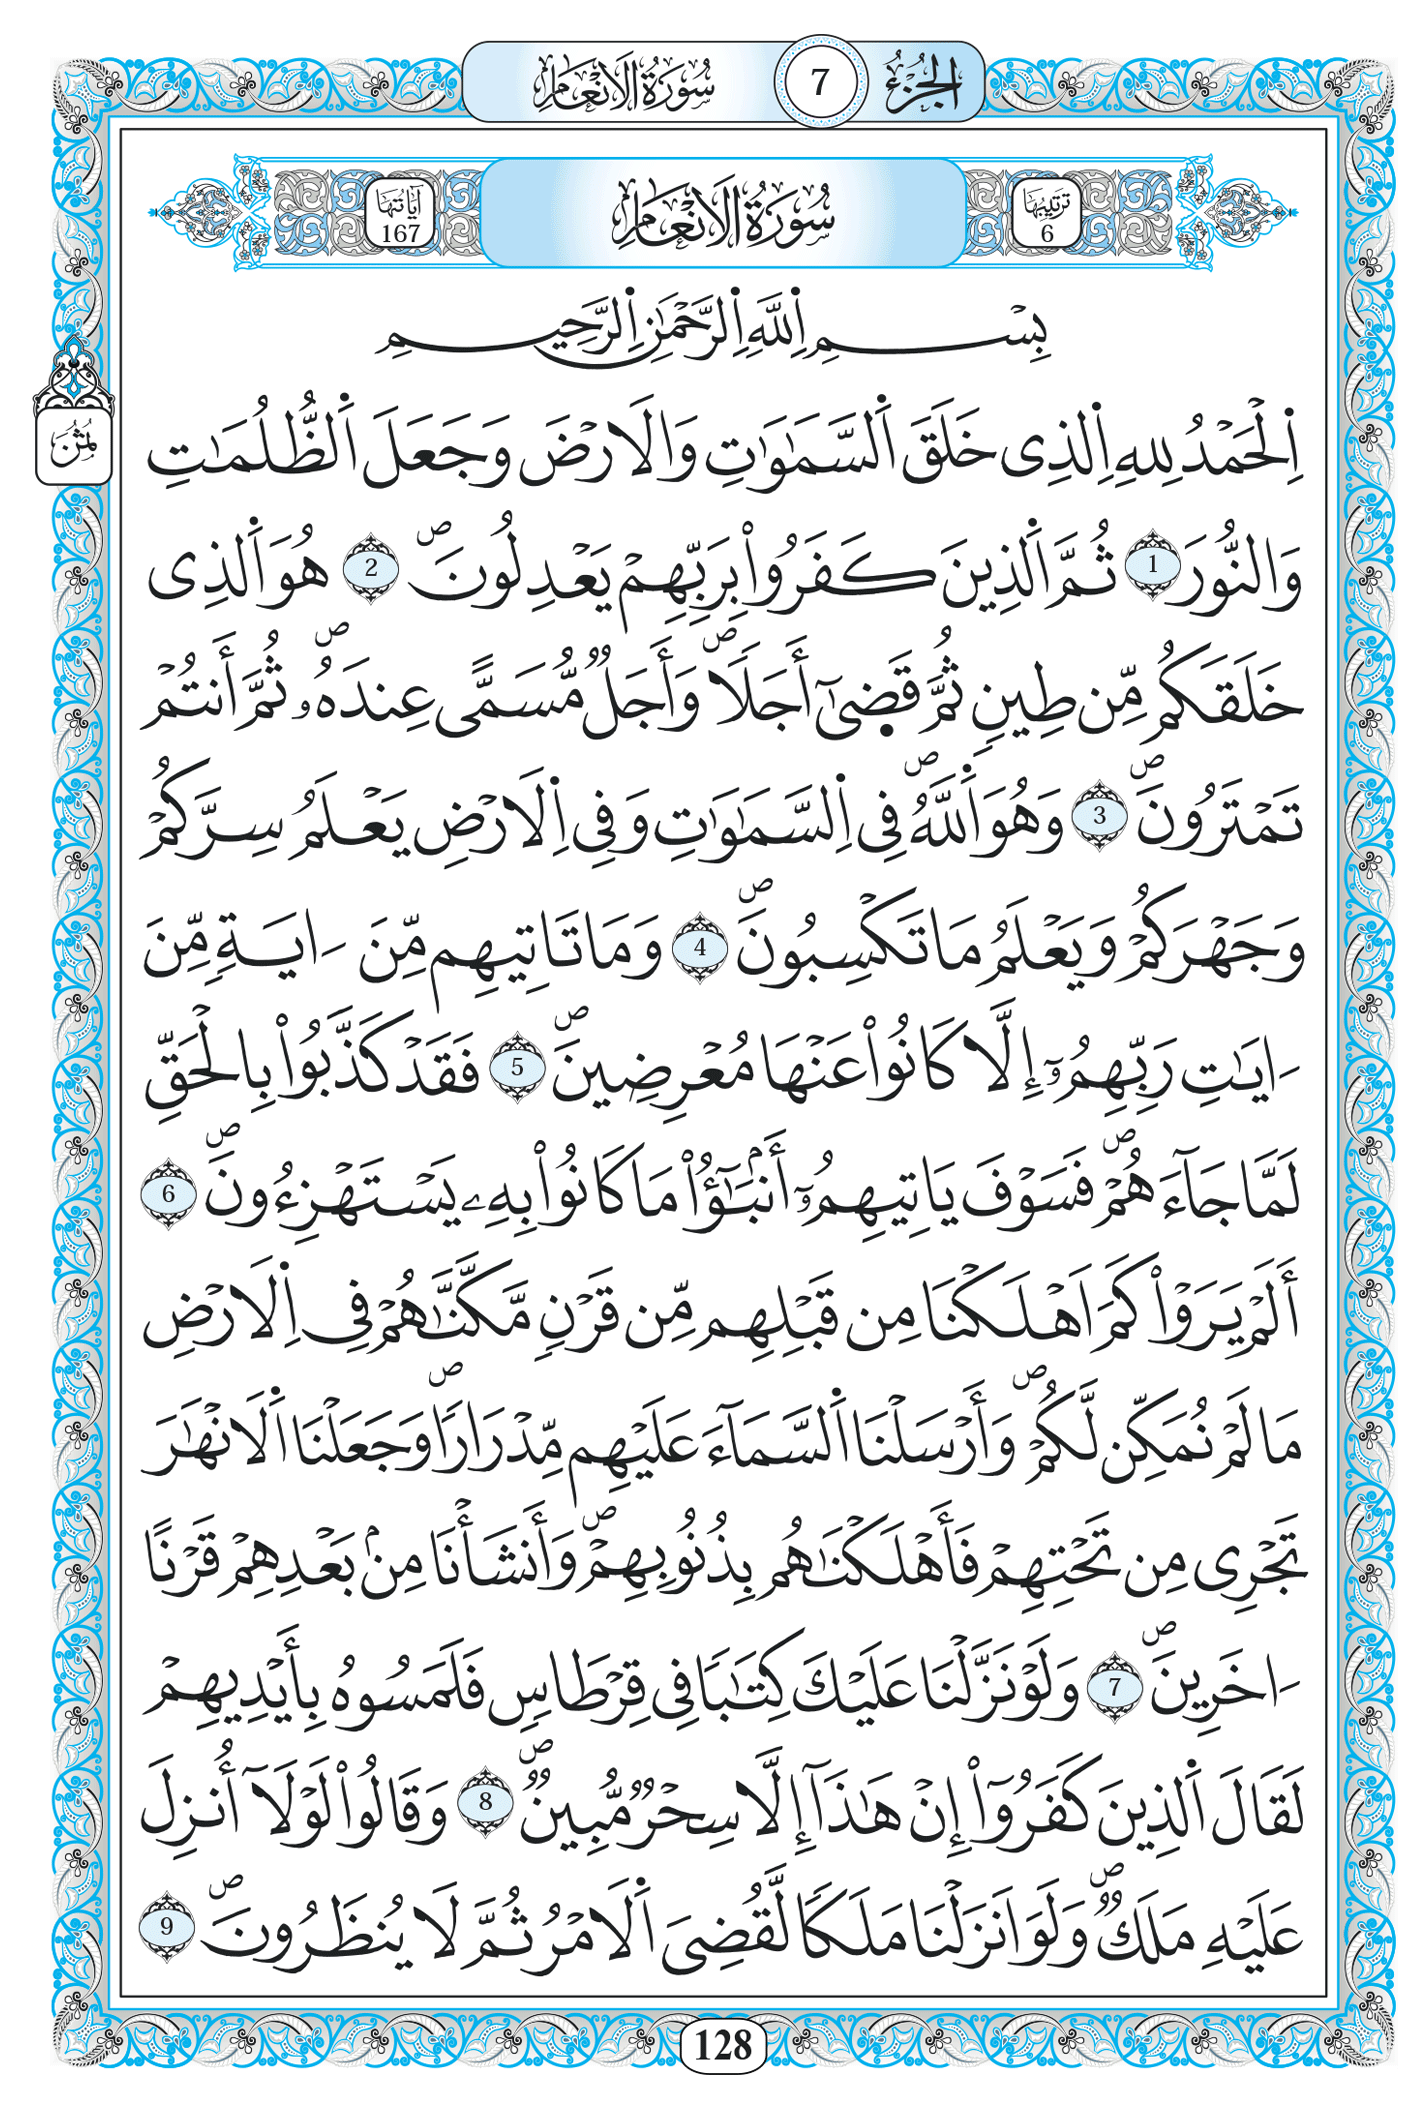 الجُزْءُ 7 سُورَةُ الَانْعَامِ
تَرْتِيبُهَا 6 سُورَةُ الَانْعَامِ آيَاتُهَا 167
بِسْمِ اِللَّهِ اِلرَّحْمَٰنِ اِلرَّحِيمِ
ثُمُن
اِلْحَمْدُ لِلهِ اِلذِى خَلَقَ اَلسَّمَٰوَٰتِ وَالَارْضَ وَجَعَلَ اَلظُّلُمَٰتِ
وَالنُّورَ 1 ثُمَّ اَلذِينَ كَفَرُواْ بِرَبِّهِمْ يَعْدِلُونَۖ 2 هُوَ اَلذِى
خَلَقَكُم مِّن طِينٍ ثُمَّ قَضَىٰٓ أَجَلَاۖ وَأَجَلٌ مُّسَمًّى عِندَهُۥۖ ثُمَّ أَنتُمْ
تَمْتَرُونَۖ 3 وَهُوَ اَللَّهُۖ فِى اِلسَّمَٰوَٰتِ وَفِى اِلَارْضِ يَعْلَمُ سِرَّكُمْ
وَجَهْرَكُمْ وَيَعْلَمُ مَا تَكْسِبُونَۖ 4 وَمَا تَاتِيهِم مِّنَ ـَايَةٍ مِّنَ
ـَايَٰتِ رَبِّهِمُۥٓ إِلَّا كَانُواْ عَنْهَا مُعْرِضِينَۖ 5 فَقَدْ كَذَّبُواْ بِالْحَقِّ
لَمَّا جَآءَهُمْۖ فَسَوْفَ يَاتِيهِمُۥٓ أَنۢبَٰٓؤُاْ مَا كَانُواْ بِهِۦ يَسْتَهْزِءُونَۖ 6
أَلَمْ يَرَوْاْ كَمَ اَهْلَكْنَا مِن قَبْلِهِم مِّن قَرْنٍ مَّكَّنَّٰهُمْ فِى اِلَارْضِ
مَا لَمْ نُمَكِّن لَّكُمْۖ وَأَرْسَلْنَا اَلسَّمَآءَ عَلَيْهِم مِّدْرَارًاۖ وَجَعَلْنَا اَلَانْهَٰرَ
تَجْرِى مِن تَحْتِهِمْ فَأَهْلَكْنَٰهُم بِذُنُوبِهِمْۖ وَأَنشَأْنَا مِنۢ بَعْدِهِمْ قَرْنًا
ـَاخَرِينَۖ 7 وَلَوْ نَزَّلْنَا عَلَيْكَ كِتَٰبًا فِى قِرْطَاسٍ فَلَمَسُوهُ بِأَيْدِيهِمْ
لَقَالَ اَلذِينَ كَفَرُوٓاْ إِنْ هَٰذَآ إِلَّا سِحْرٌ مُّبِينٌۖ 8 وَقَالُواْ لَوْلَآ أُنزِلَ
عَلَيْهِ مَلَكٌۖ وَلَوَ اَنزَلْنَا مَلَكًا لَّقُضِىَ اَلَامْرُ ثُمَّ لَا يُنظَرُونَۖ 9
128